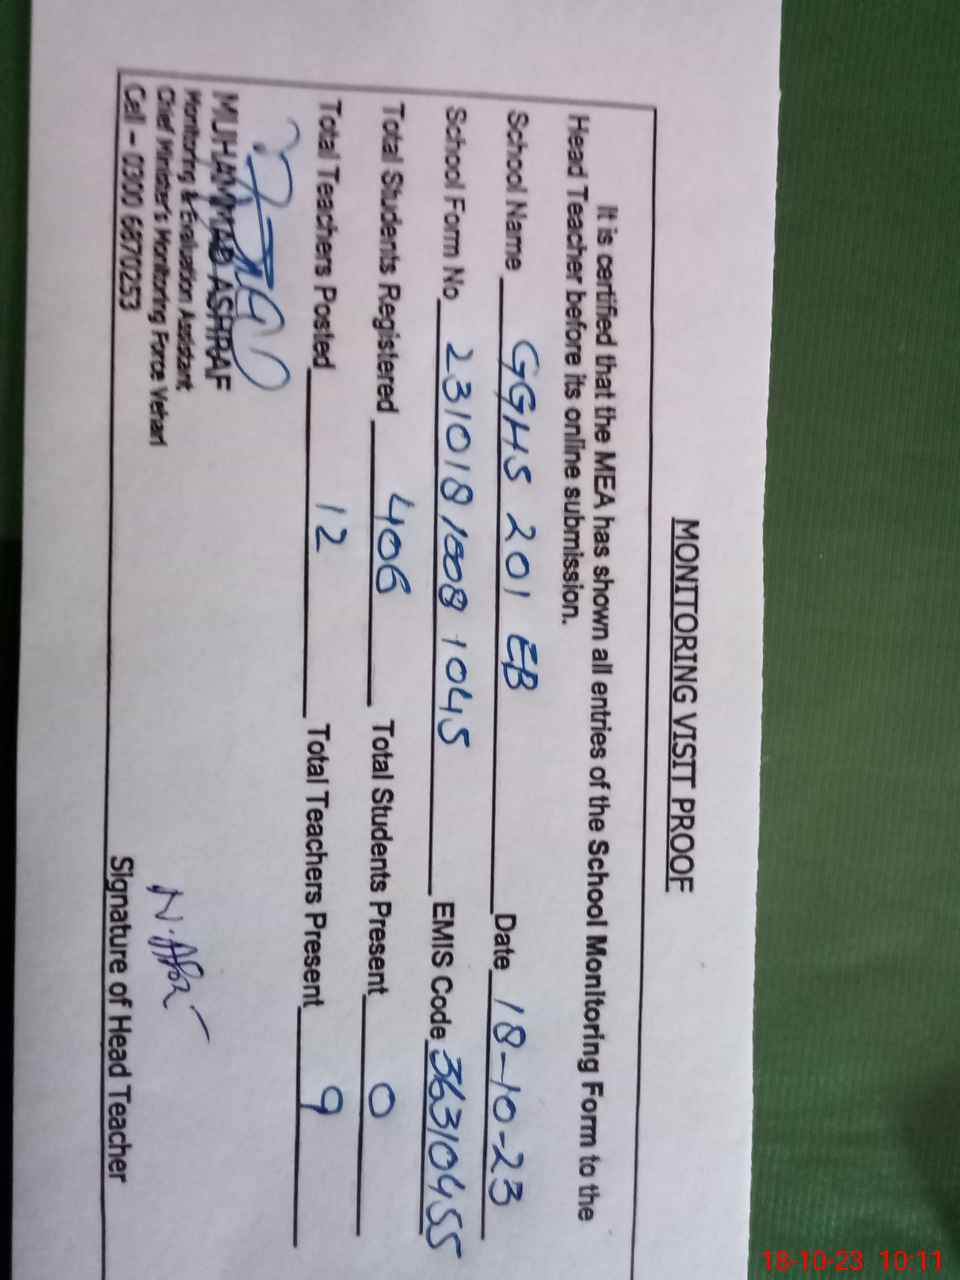 MONITORING VISIT PROOF
It is certified that the MEA has shown all entries of the School Monitoring Form to the
Head Teacher before its online submission.
School Name GGHS 201 EB Date 18-10-23
School Form No 231018 1008 1045 EMIS Code 36310455
Total Students Registered 406 Total Students Present 0
Total Teachers Posted 12 Total Teachers Present 9
MUHAMMAD ASHRAF
Monitoring & Evaluation Assistant
Chief Minister's Monitoring Force Vehari
Cell - 0300 6670253
Signature of Head Teacher
18-10-23 10:11